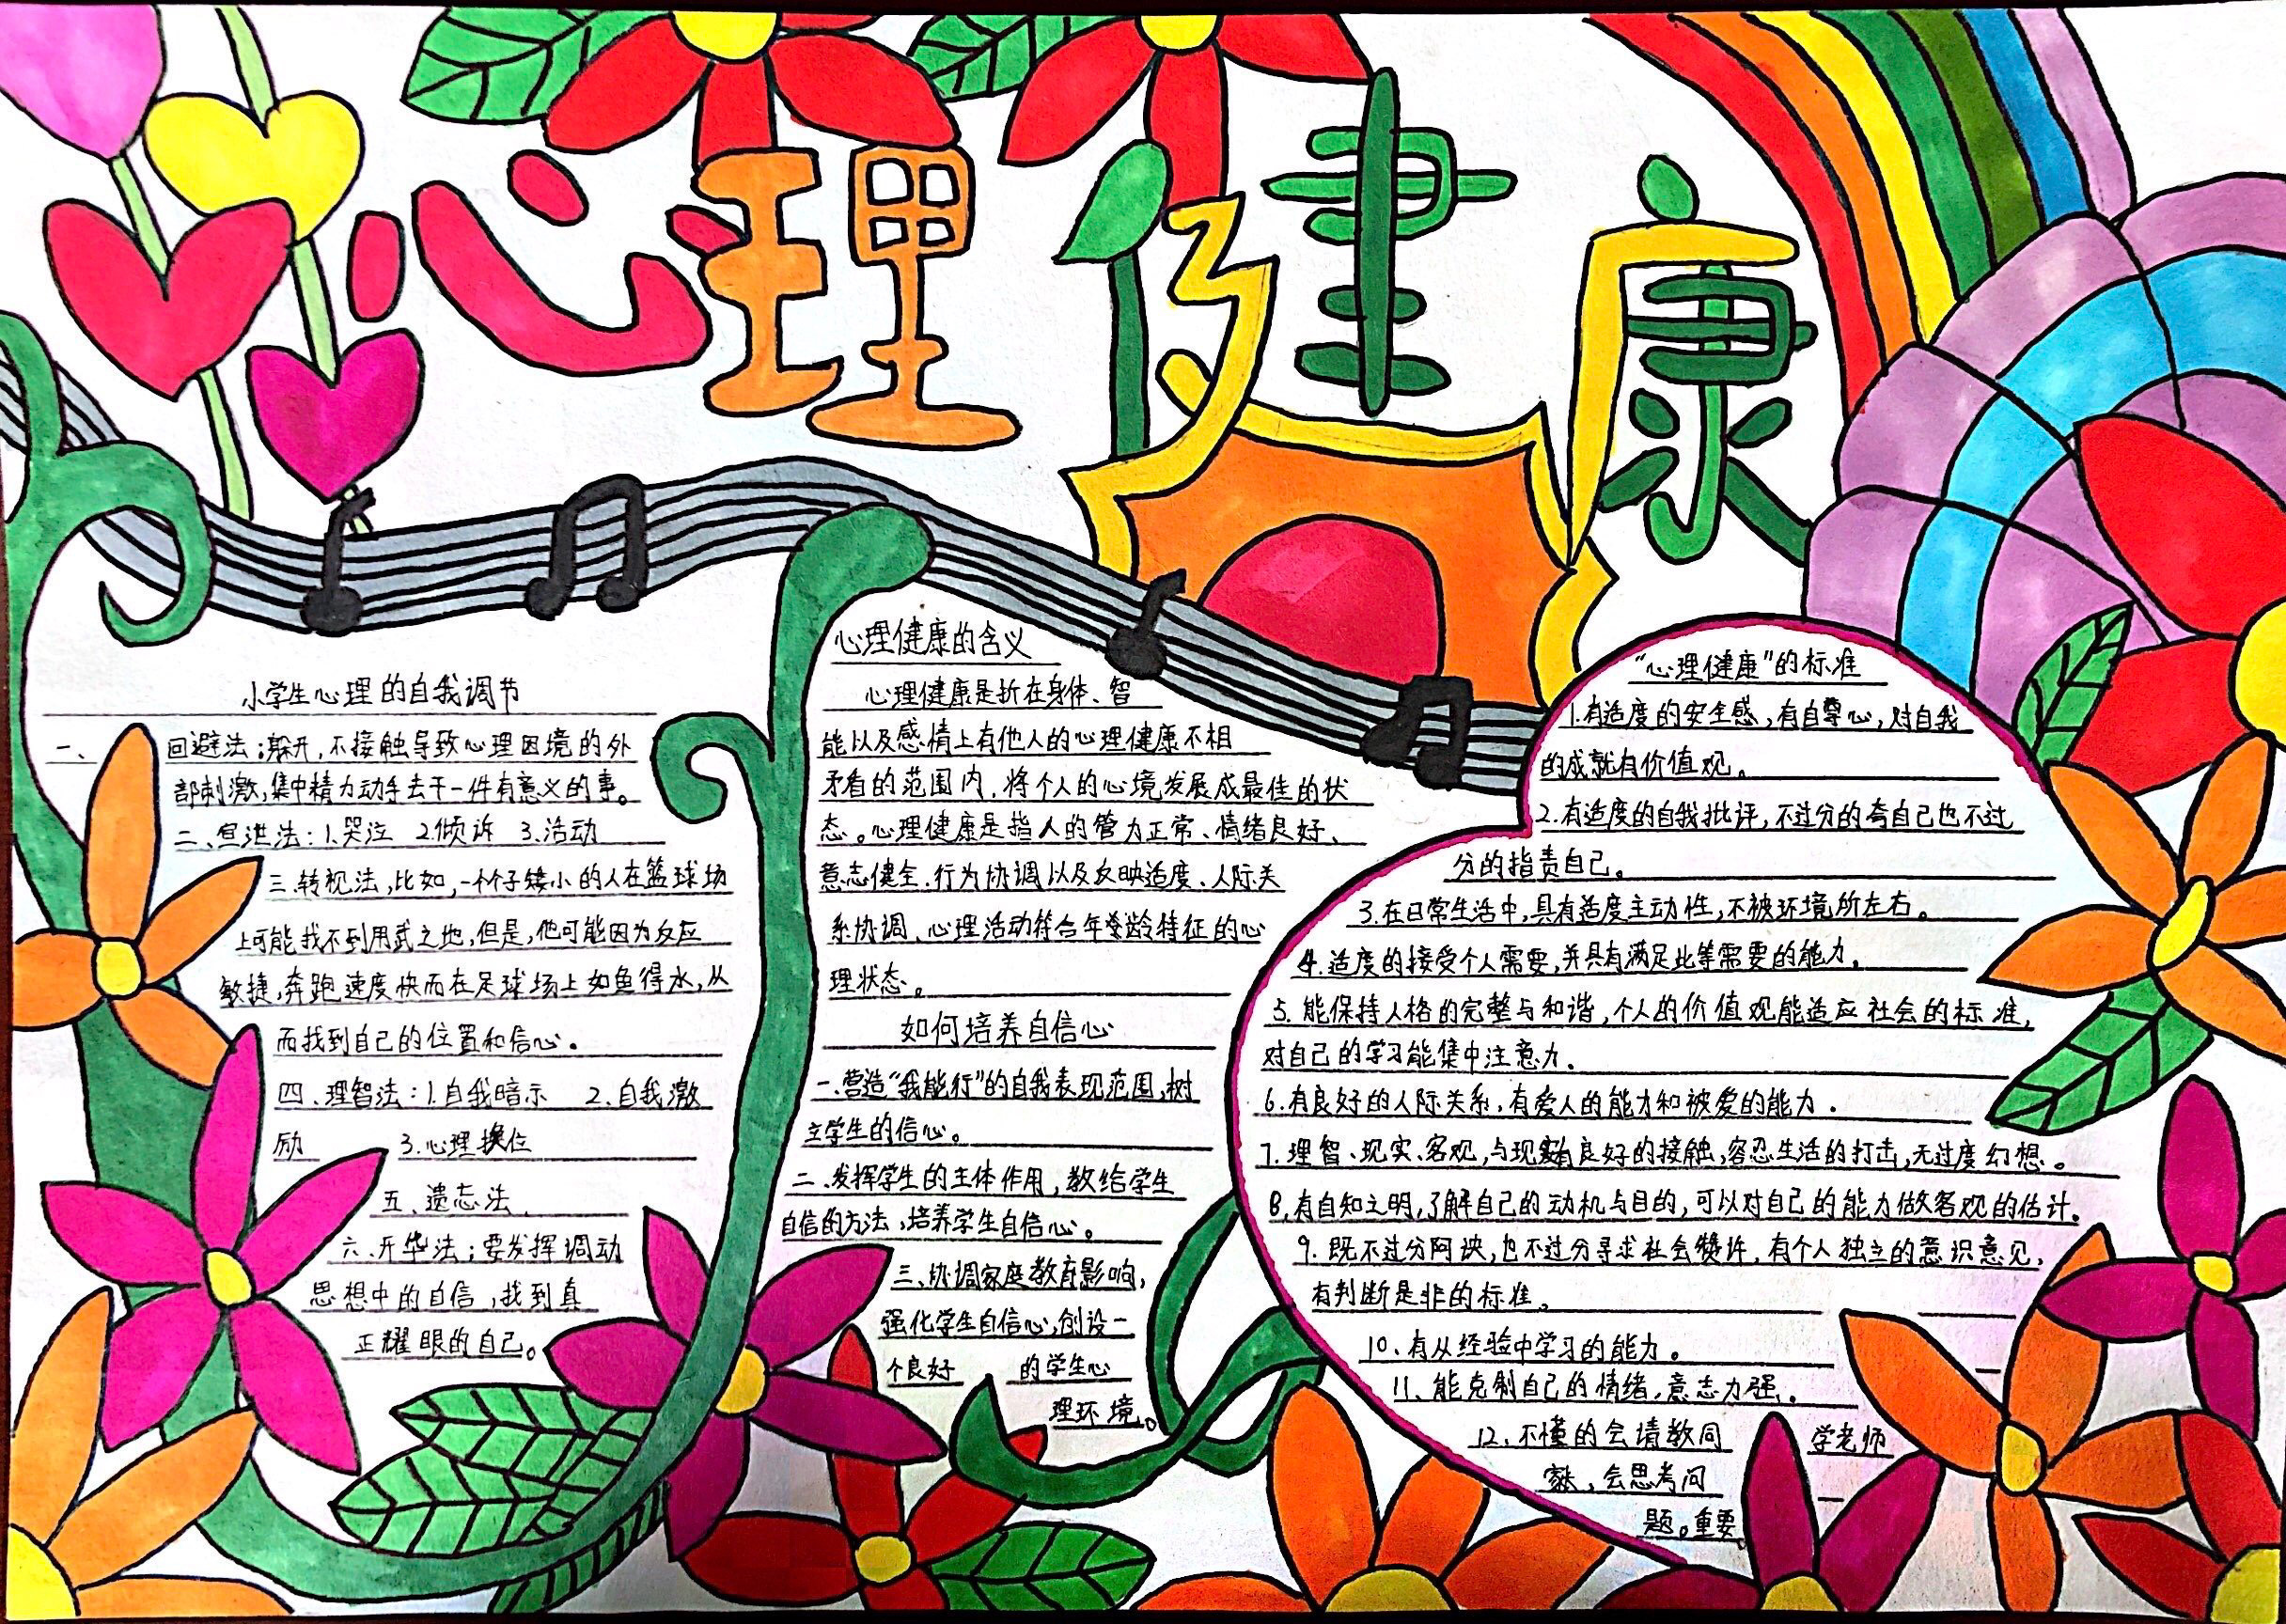 心理健康
小学生心理的自我调节
一、回避法；躲开，不接触导致心理困境的外
部刺激，集中精力动手去干一件有意义的事。
二、宣泄法：1.哭泣 2.倾诉 3.活动
三.转视法，比如，一个个子矮小的人在篮球场
上可能找不到用武之地，但是，他可能因为反应
敏捷，奔跑速度快而在足球场上如鱼得水，从
而找到自己的位置和信心。
四.理智法：1.自我暗示 2.自我激
励 3.心理换位
五、遗忘法
六.升华法；要发挥调动
思想中的自信，找到真
正耀眼的自己。
心理健康的含义
心理健康是折在身体、智
能以及感情上有他人的心理健康不相
矛盾的范围内，将个人的心境发展成最佳的状
态。心理健康是指人的管力正常、情绪良好、
意志健全、行为协调以及反映适度、人际关
系协调、心理活动符合年龄特征的心
理状态。
如何培养自信心
一.营造“我能行”的自我表现范围，树
立学生的信心。
二.发挥学生的主体作用，教给学生
自信的方法，培养学生自信心。
三、协调家庭教育影响，
强化学生自信心，创设一
个良好 的学生心
理环境。
“心理健康”的标准
1.有适度的安全感，有自尊心，对自我
的成就有价值观。
2.有适度的自我批评，不过分的夸自己也不过
分的指责自己。
3.在日常生活中，具有适度主动性，不被环境所左右。
4.适度的接受个人需要，并具有满足此等需要的能力。
5.能保持人格的完整与和谐，个人的价值观能适应社会的标准，
对自己的学习能集中注意力。
6.有良好的人际关系，有爱人的能力和被爱的能力.
7.理智、现实、客观，与现实有良好的接触，容忍生活的打击，无过度幻想。
8.有自知之明，了解自己的动机与目的，可以对自己的能力做客观的估计。
9.既不过分阿谀，也不过分寻求社会赞许，有个人独立的意识意见，
有判断是非的标准。
10.有从经验中学习的能力。
11、能克制自己的情绪，意志力强。
12、不懂的会请教同 学老师
家长，会思考问
题。重要